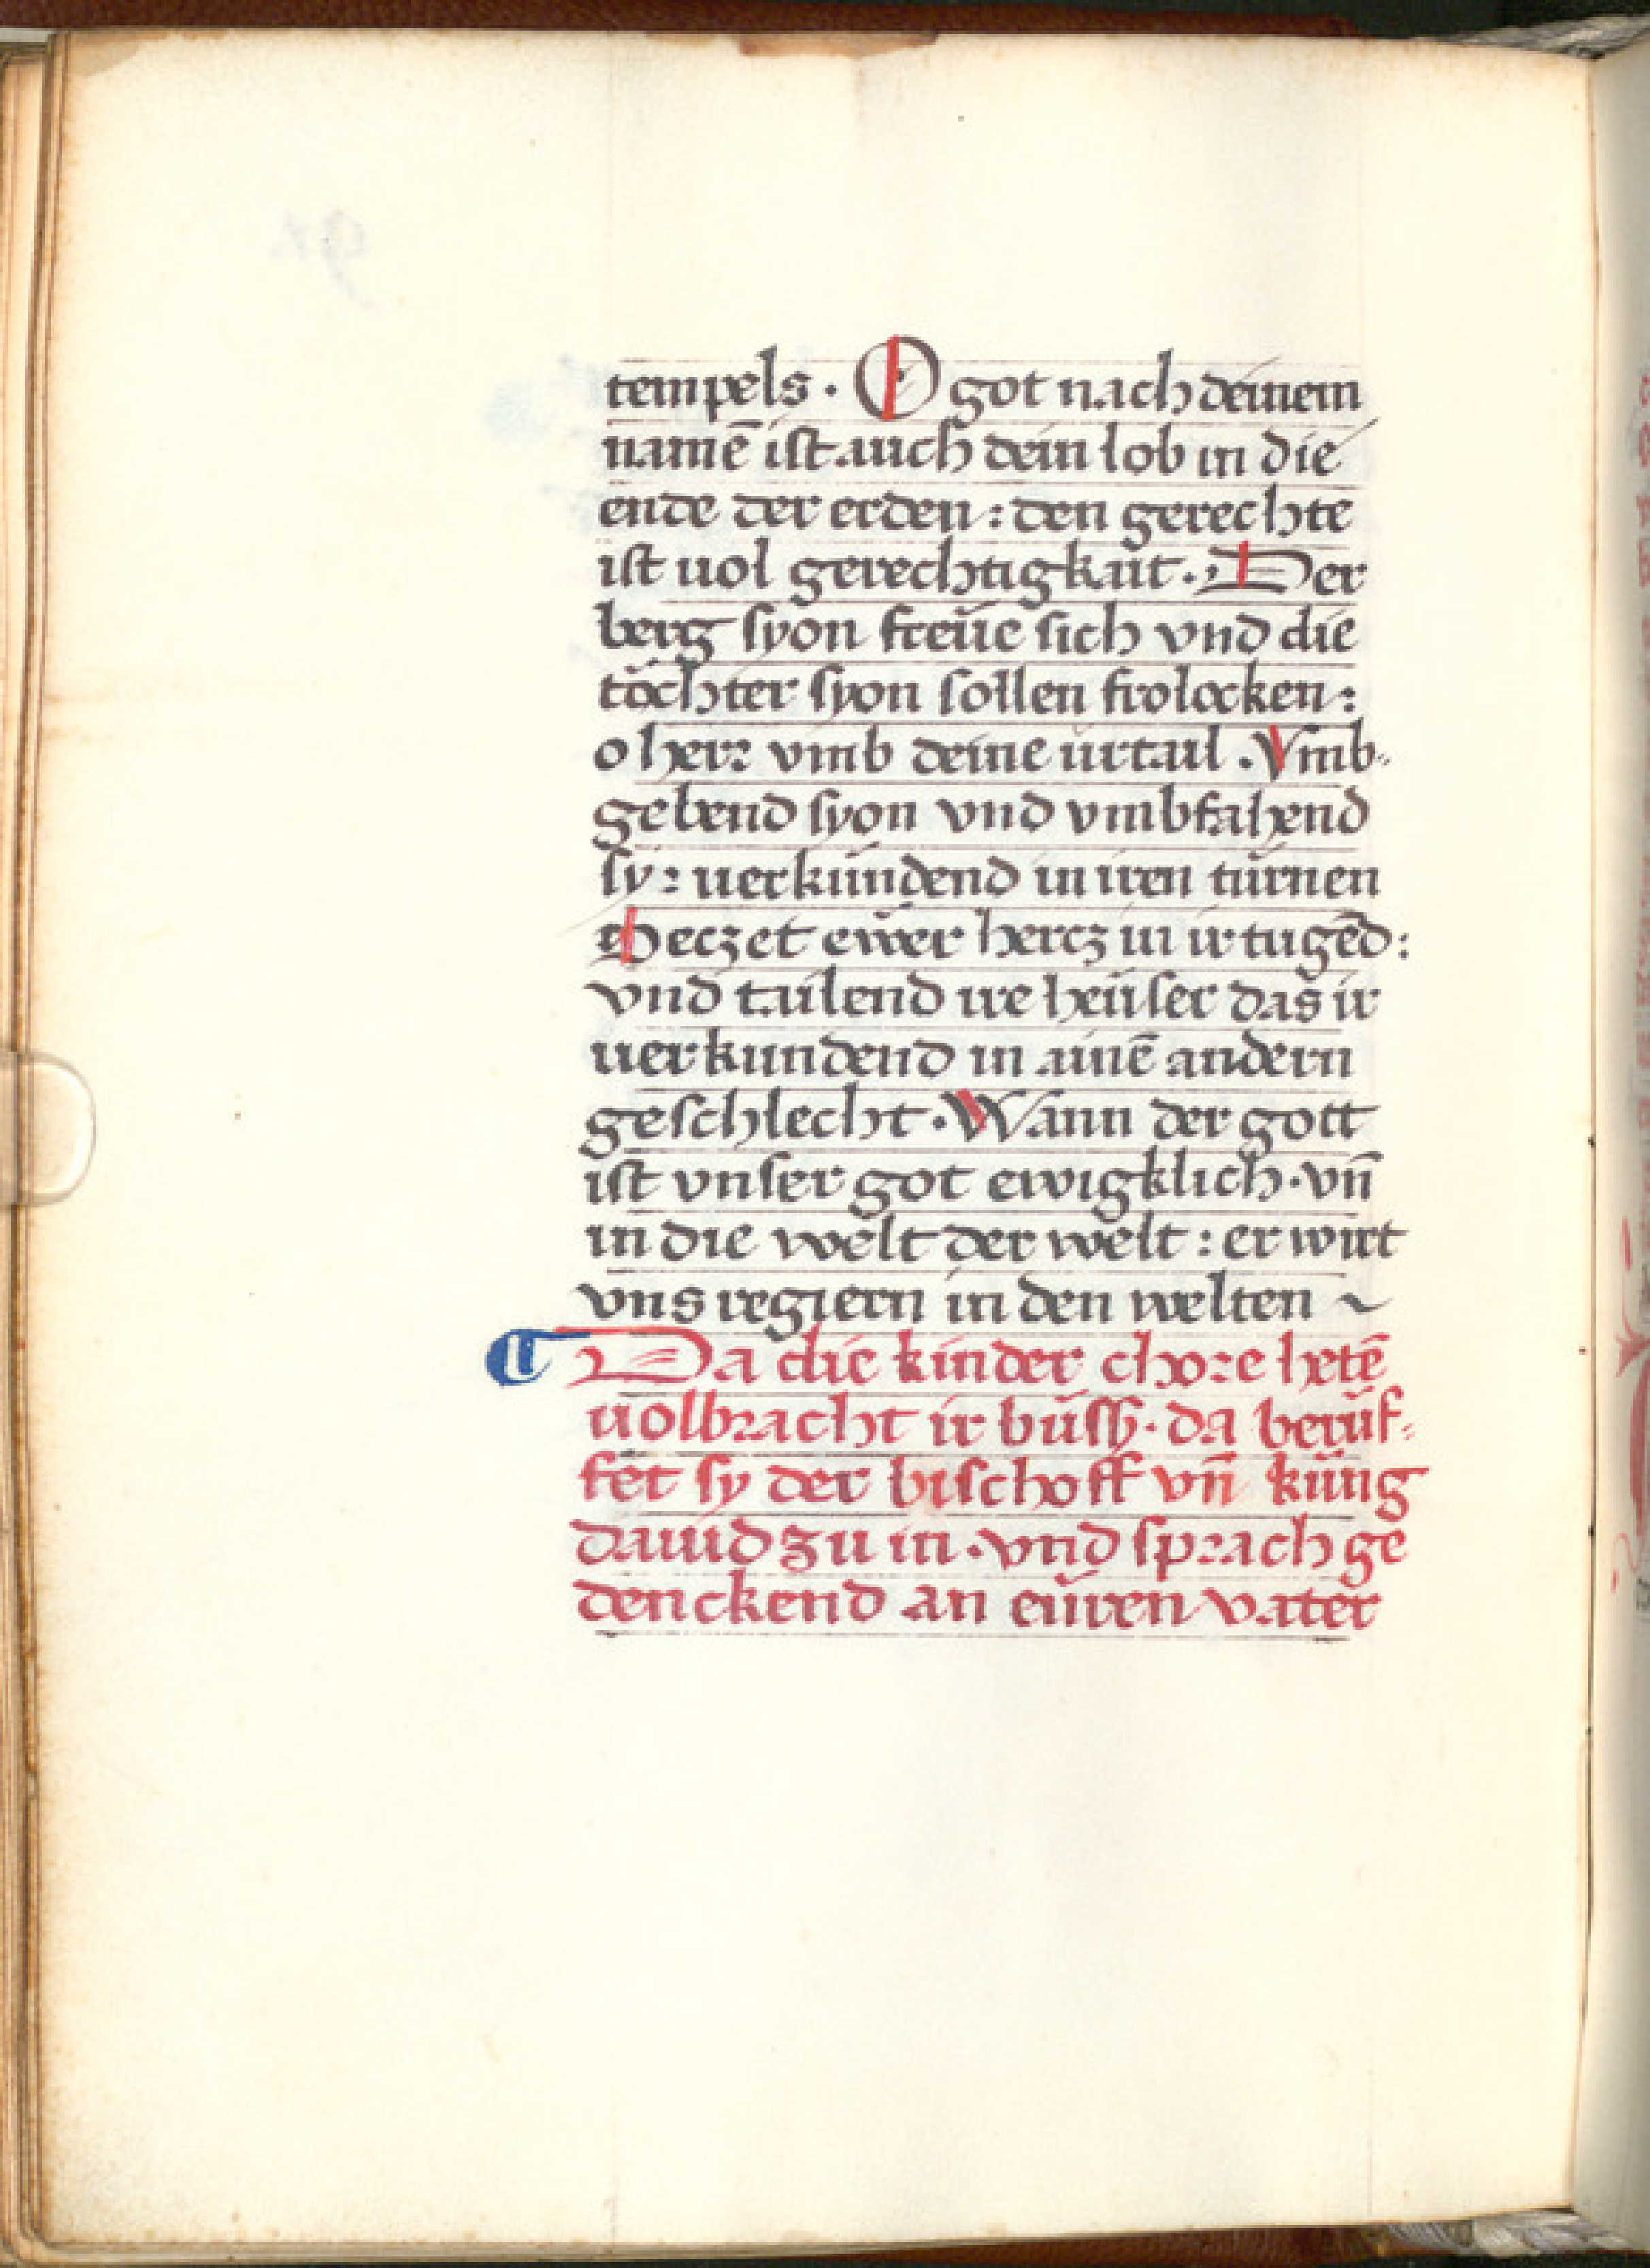 tempels · O got nach deinem
namē ist auch dein lob in die
ende der erden : den gerechte
ist uol gerechtigkait · Der
berg syon freüe sich vnd die
töchter syon sollen frolocken :
o herr vmb deine urtail · Vmb-
gebend syon vnd vmbfahend
sy : uerkündend in iren türnen
Seczet ewer hercz in ir tugēd :
vnd tailend ire heüser das ir
uerkundend in ainē andern
geschlecht · Wann der gott
ist vnser got ewigklich · vn̄
in die welt der welt : er wirt
vns regiern in den welten ~
Da die kinder chore hetē
uolbracht ir büß · da berüf-
fet sy der bischoff vn̄ küng
dauid zu in · vnd sprach ge
denckend an eüren vater